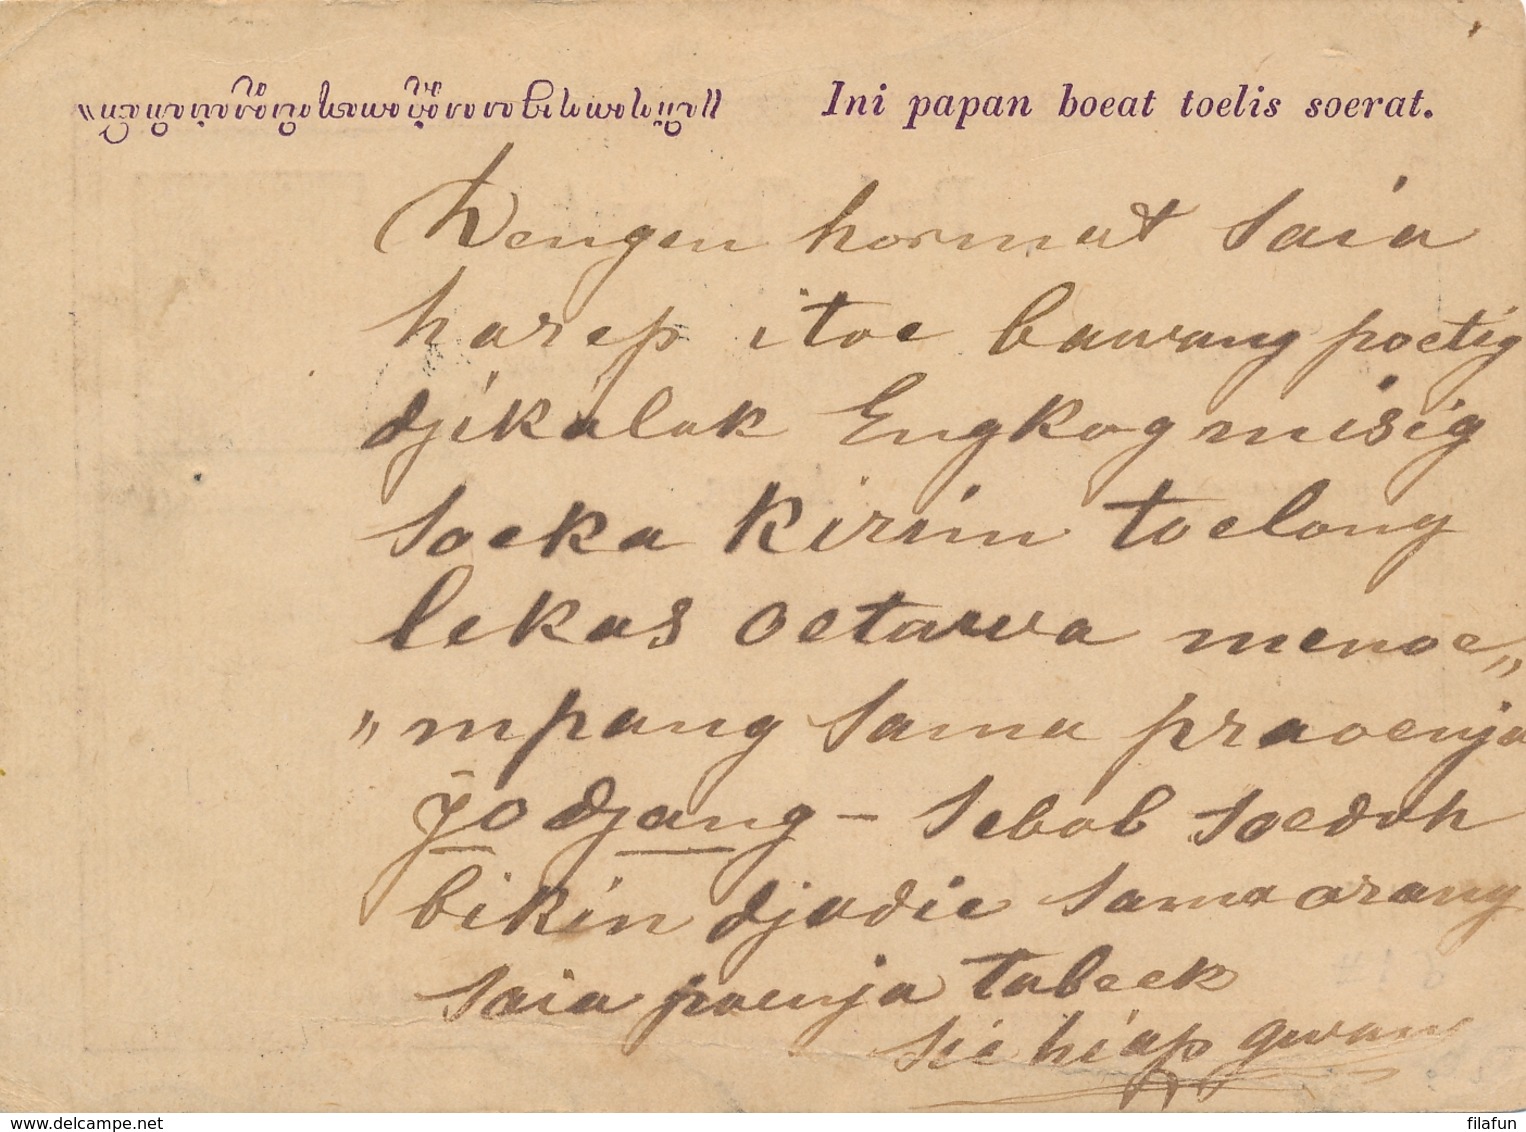 Ini papan boeat toelis soerat.
Dengen hormat saia
harep itoe bawang poetig
djikalak Engkog misig
soeka kirim toelong
lekas oetawa menoe„
„mpang sama praoenja
Jo djang – Sebab soedah
bikin djadie sama orang
saia poenja tabeek
Sie hiap gwan
www.delcampe.net
filafun